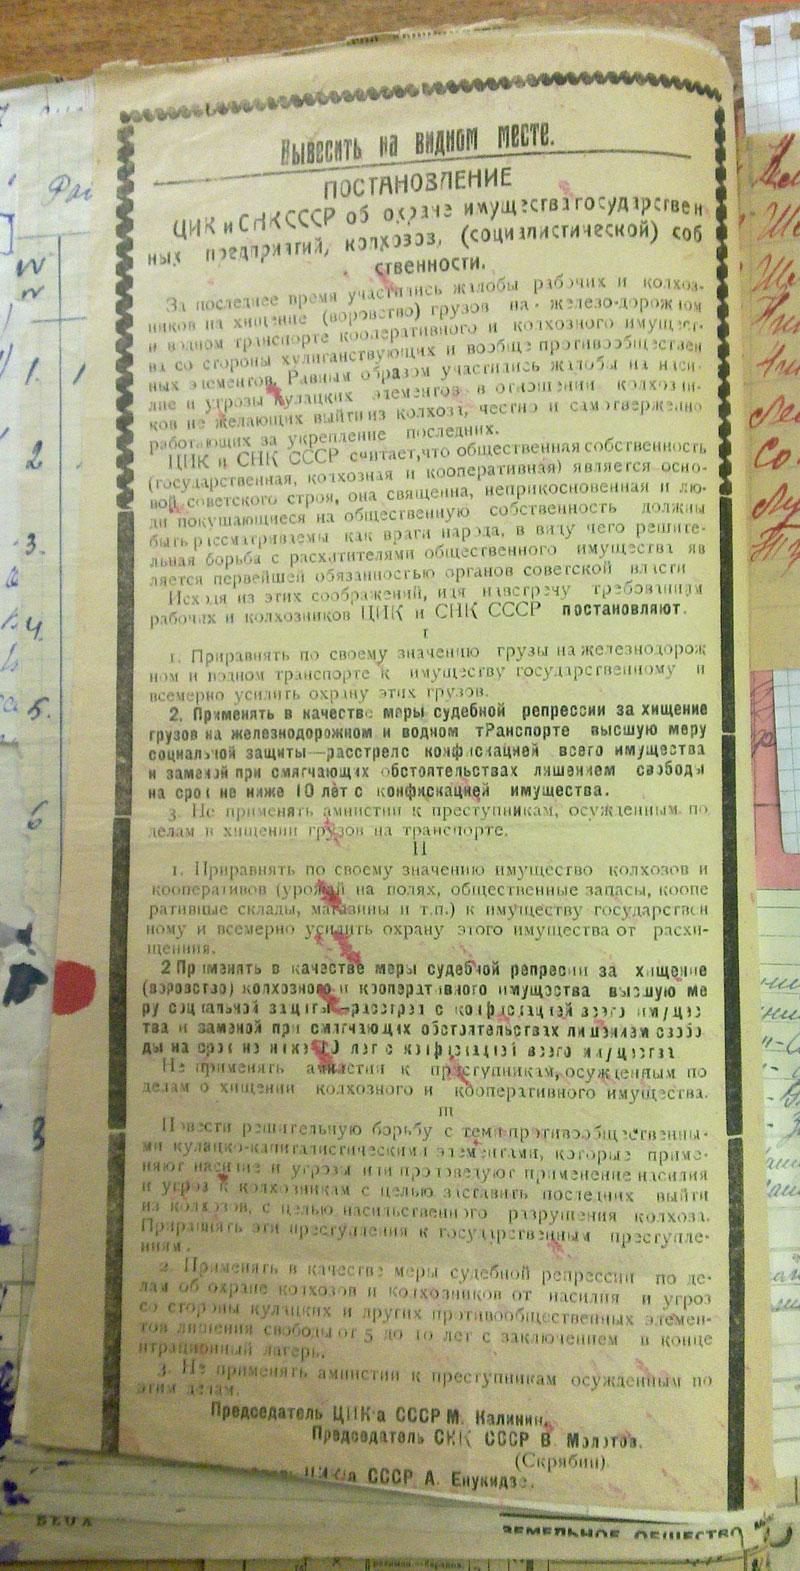 Вывесить на видном месте.
ПОСТАНОВЛЕНИЕ
ЦИК и СНК СССР об охране имущества государствен
ных предприятий, колхозов, (социалистической) соб
ственности.
За последнее время участились жалобы рабочих и колхоз-
ников на хищение (воровство) грузов на железо-дорожном
и водном транспорте кооперативного и колхозного имущест-
ва со стороны хулиганствующих и вообще противообществен
ных элементов. Равным образом участились жалобы на наси-
лие и угрозы кулацких элементов в отношении колхозни-
ков не желающих выйти из колхоза, честно и самоотверженно
работающих за укрепление последних.
ЦИК и СНК СССР считает, что общественная собственность
(государственная, колхозная и кооперативная) является осно-
вой советского строя, она священна, неприкосновенная и лю-
ди покушающиеся на общественную собственность должны
быть рассматриваемы как враги народа, в виду чего решите-
льная борьба с расхитителями общественного имущества яв
ляется первейшей обязанностью органов советской власти
Исходя из этих соображений, идя навстречу требованиям
рабочих и колхозников ЦИК и СНК СССР постановляют.
I
1. Приравнять по своему значению грузы на железнодорож
ном и водном транспорте к имуществу государственному и
всемерно усилить охрану этих грузов.
2. Применять в качестве меры судебной репрессии за хищение
грузов на железнодорожном и водном тРанспорте высшую меру
социальной защиты—расстрел с конфискацией всего имущества
и заменой при смягчающих обстоятельствах лишением свободы
на срок не ниже 10 лет с конфискацией имущества.
3. Не применять амнистии к преступникам, осужденным по
делам о хищении грузов на транспорте.
II
1. Приравнять по своему значению имущество колхозов и
кооперативов (урожай на полях, общественные запасы, коопе
ративные склады, магазины и т.п.) к имуществу государствен
ному и всемерно усилить охрану этого имущества от расхи-
щения.
2 Применять в качестве меры судебной репрессии за хищение
(воровство) колхозного и кооперативного имущества высшую ме
ру социальной защиты—расстрел с конфискацией всего имущес
тва и заменой при смягчающих обстоятельствах лишением свобо
ды на срок не ниже 10 лет с конфискацией всего имущества
Не применять амнистии к преступникам, осужденным по
делам о хищении колхозного и кооперативного имущества.
III
Повести решительную борьбу с теми противообщественны-
ми кулацко-капиталистическими элементами, которые приме-
няют насилие и угрозы или проповедуют применение насилия
и угроз к колхозникам с целью заставить последних выйти
из колхозов, с целью насильственного разрушения колхоза.
Приравнять эти преступления к государственным преступле-
ниям.
2. Применять в качестве меры судебной репрессии по де-
лам об охране колхозов и колхозников от насилия и угроз
со стороны кулацких и других противообщественных элемен-
тов лишения свободы от 5 до 10 лет с заключением в конце
нтрационный лагерь.
3. Не применять амнистии к преступникам осужденным по
этим делам.
Председатель ЦИК'а СССР М. Калинин.
Председатель СНК СССР В. Молотов.
(Скрябин)
ЦИКа СССР А. Енукидзе.
ЗЕМЕЛЬНОЕ ОБЩЕСТВО
1.
2
3.
4.
5.
6